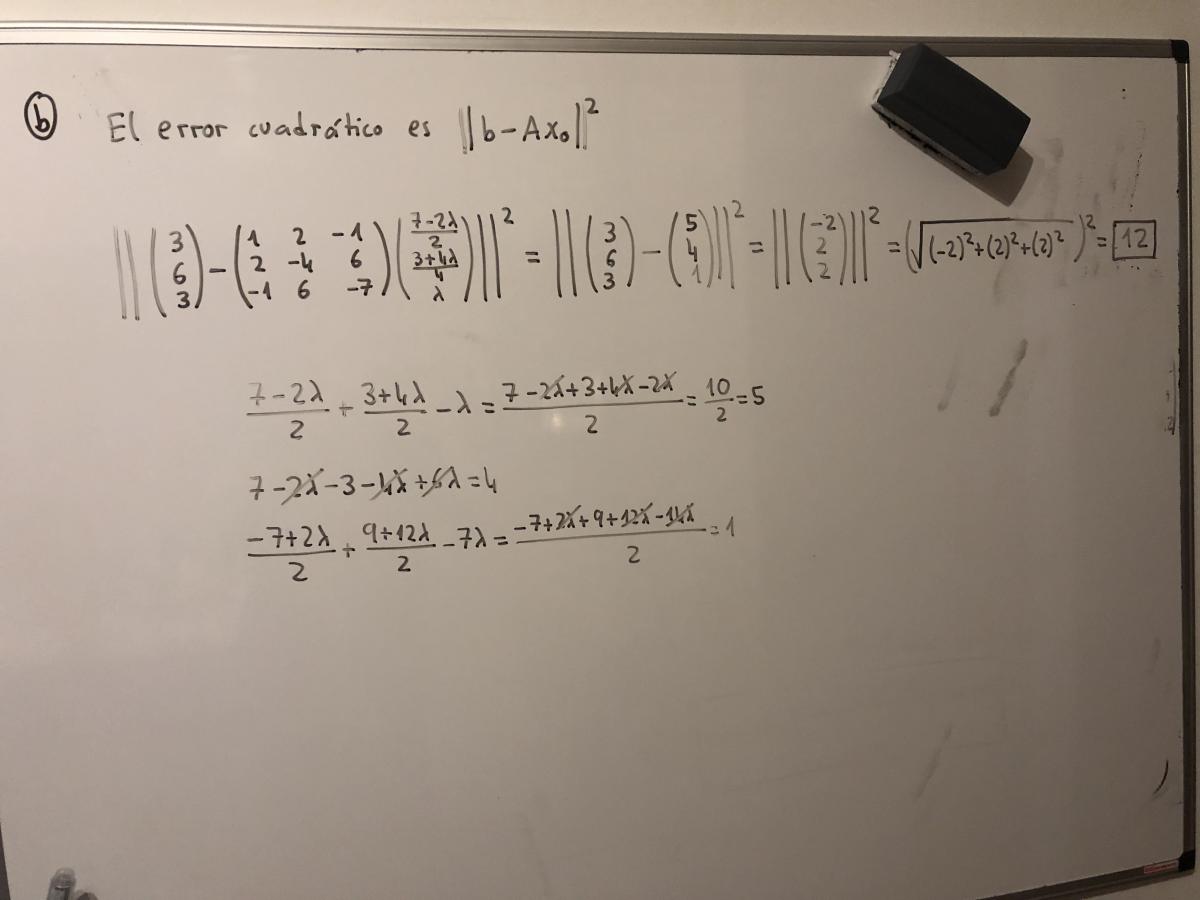 b El error cuadrático es ||b-Ax₀||²
||(3 6 3) - (1 2 -1 2 -4 6 -1 6 -7)((7-2λ)/2 (3+4λ)/4 λ)||² = ||(3 6 3) - (5 4 1)||² = ||(-2 2 2)||² = (√((-2)²+(2)²+(2)²))² = 12
(7-2λ)/2 + (3+4λ)/2 - λ = (7-2λ+3+4λ-2λ)/2 = 10/2 = 5
7-2λ-3-4λ+6λ=4
(-7+2λ)/2 + (9+12λ)/2 - 7λ = (-7+2λ+9+12λ-14λ)/2 = 1